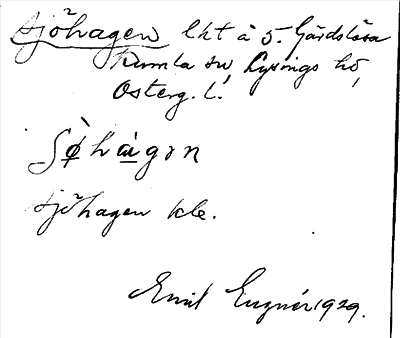 Sjöhagen lht å S. Gärdslösa
Kumla sn, Lysings hd,
Österg. l.
Sø̀hàgɔn
sjöhagen kle.
Emil Eugnér 1929.